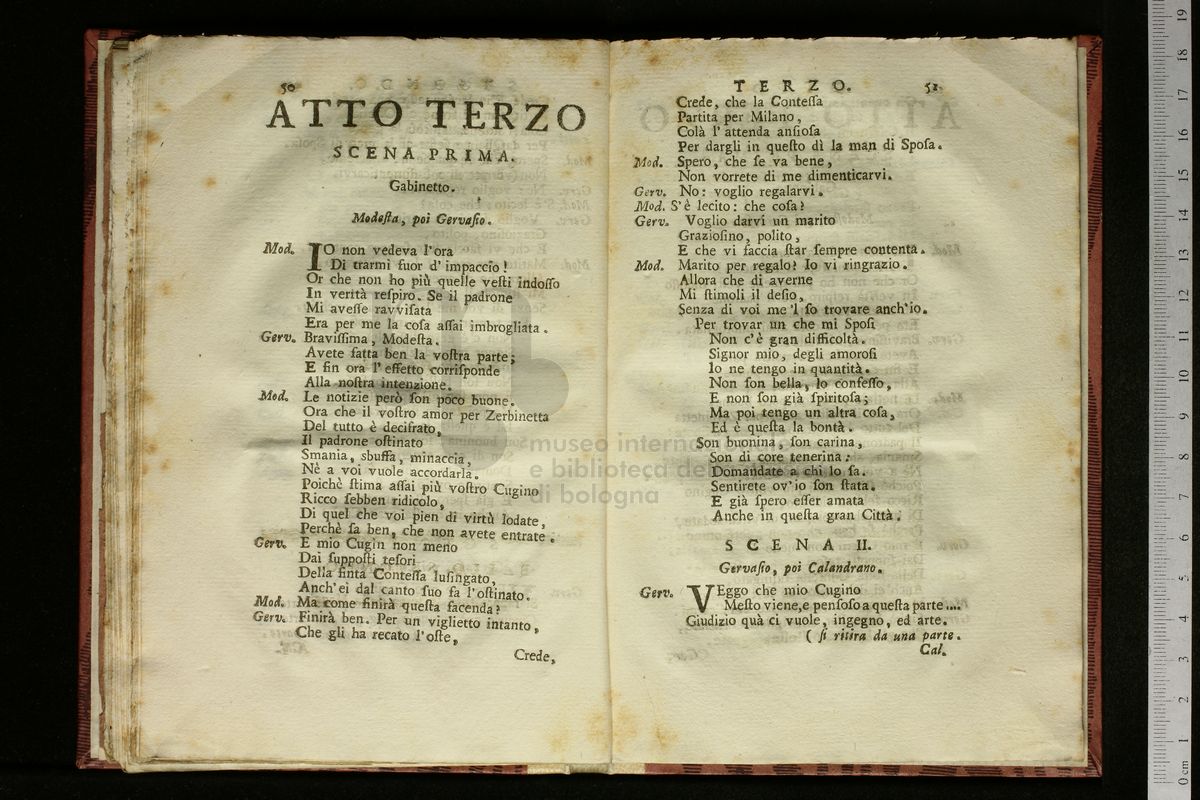 50
ATTO TERZO
SCENA PRIMA.
Gabinetto.
Modesta, poi Gervasio.
Mod. IO non vedeva l'ora
Di trarmi fuor d'impaccio!
Or che non ho più quelle vesti indosso
In verità respiro. Se il padrone
Mi avesse ravvisata
Era per me la cosa assai imbrogliata.
Gerv. Bravissima, Modesta.
Avete fatta ben la vostra parte;
E fin ora l'effetto corrisponde
Alla nostra intenzione.
Mod. Le notizie però son poco buone.
Ora che il vostro amor per Zerbinetta
Del tutto è decifrato,
Il padrone ostinato
Smania, sbuffa, minaccia,
Nè a voi vuole accordarla.
Poichè stima assai più vostro Cugino
Ricco sebben ridicolo,
Di quel che voi pien di virtù lodate,
Perchè sa ben, che non avete entrate.
Gerv. E mio Cugin non meno
Dai supposti tesori
Della finta Contessa lusingato,
Anch'ei dal canto suo fa l'ostinato.
Mod. Ma come finirà questa facenda?
Gerv. Finirà ben. Per un viglietto intanto,
Che gli ha recato l'oste,
Crede,
TERZO. 51
Crede, che la Contessa
Partita per Milano,
Colà l'attenda ansiosa
Per dargli in questo dì la man di Sposa.
Mod. Spero, che se va bene,
Non vorrete di me dimenticarvi.
Gerv. No: voglio regalarvi.
Mod. S'è lecito: che cosa?
Gerv. Voglio darvi un marito
Graziosino, polito,
E che vi faccia star sempre contenta.
Mod. Marito per regalo? Io vi ringrazio.
Allora che di averne
Mi stimoli il desio,
Senza di voi me 'l so trovare anch'io.
Per trovar un che mi Sposi
Non c'è gran difficoltà.
Signor mio, degli amorosi
Io ne tengo in quantità.
Non son bella, lo confesso,
E non son già spiritosa;
Ma poi tengo un altra cosa,
Ed è questa la bontà.
Son buonina, son carina,
Son di core tenerina:
Domandate a chi lo sa.
Sentirete ov'io son stata.
E già spero esser amata
Anche in questa gran Città.
SCENA II.
Gervasio, poi Calandrano.
Gerv. VEggo che mio Cugino
Mesto viene, e pensoso a questa parte ....
Giudizio quà ci vuole, ingegno, ed arte.
( si ritira da una parte.
Cal.
museo internazionale
e biblioteca della
di bologna